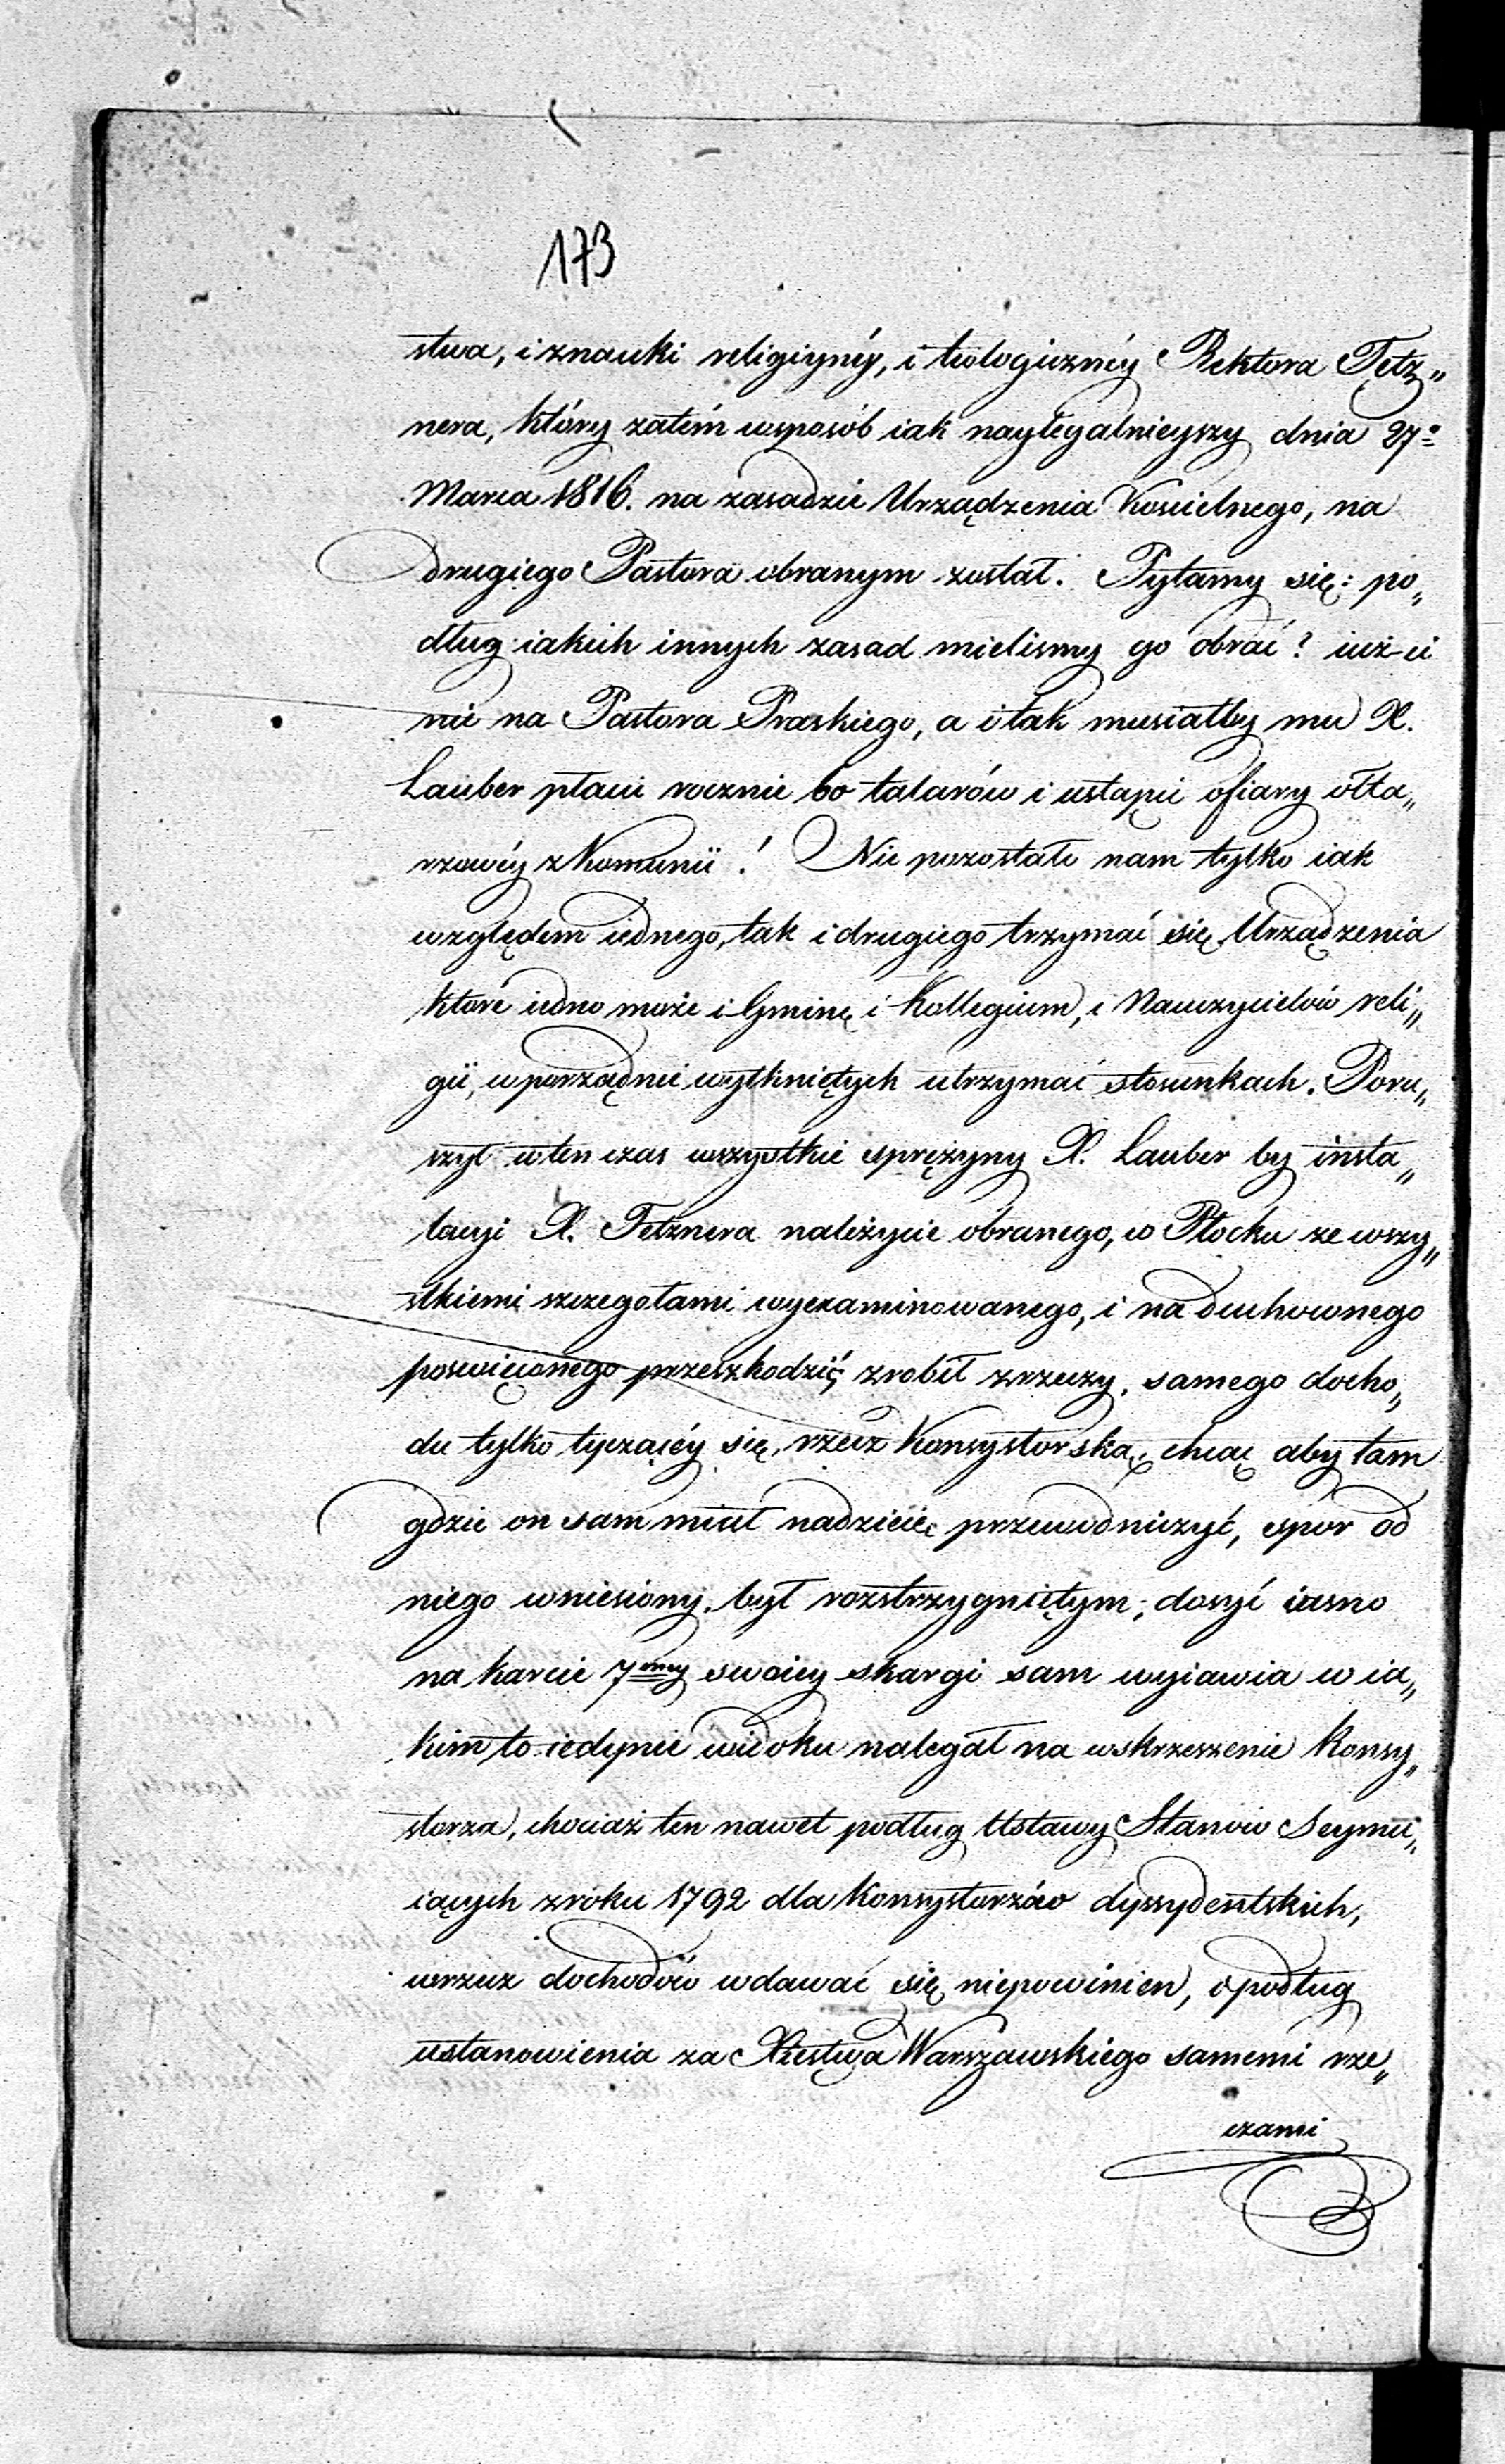 173
stwa, i z nauki religiynéy, i teologicznéy Rektora Tętz„
nera, który zatém wsposób iak naylegalnieyszy dnia 27º
Marca 1816. na zasadzie Urządzenia Koscielnego, na
drugiego Pastora obranym został. Pytamy się: po„
dług iakich innych zasad mielismy go obrać? iuż-ci
nie na Pastora Praskiego, a i tak musiałby mu X.
Lauber płacić rocznie 60 talarów i ustąpić ofiary ołta„
rzowéy z Komunii! Nie pozostało nam tylko iak
względem iednego, tak i drugiego trzymać się Urządzenia
które iedno może i Gminę i Kollegium, i Nauczycielów reli„
gii, w porządnie wytkniętych utrzymać stosunkach. Poru„
szył w ten czas wszystkie sprężyny X. Lauber by insta„
lacyi X. Tetznera należycie obranego, w Płocku ze wszy„
stkiemi szczegołami wyexaminowanego, i na duchownego
poswięconego przeszkodzić, zrobił z rzeczy, samego docho„
du tylko tyczącéy się, rzecz Konsystorską, chcąc aby tam
gdzie on sam miał nadzieię przewodniczyć, spór od
niego wniesiony, był rozstrzygniętym; dosyć iasno
na karcie 7mey swoiey skargi sam wyiawia w ia„
kim to iedynie widoku nalegał na wskrzeszenie Konsy„
storza, chociaż ten nawet podług Ustawy Stanów Seymu„
iących z roku 1792 dla Konsystorzów dyssydentskich,
w rzecz dochodów wdawać się niepowinien, i podług
ustanowienia za Xięstwa Warszawskiego samemi rze„
czami